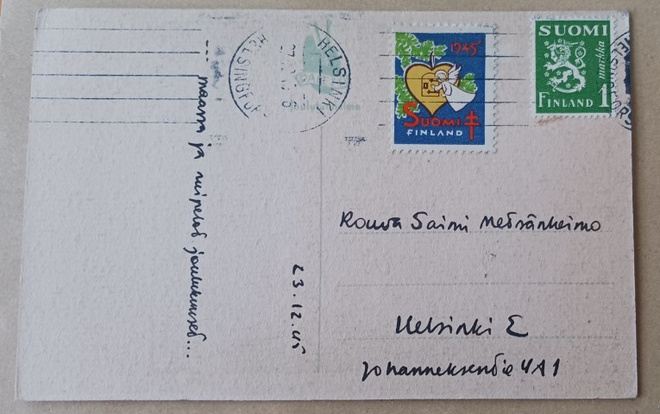 HELSINKI
HELSINGFORS
1945
SUOMI
FINLAND
SUOMI
markka
FINLAND 1
... maassa ja
joulukuuset...
23.12.45
Rouva Saimi Metsänheimo
Helsinki E
Johanneksentie 4A1